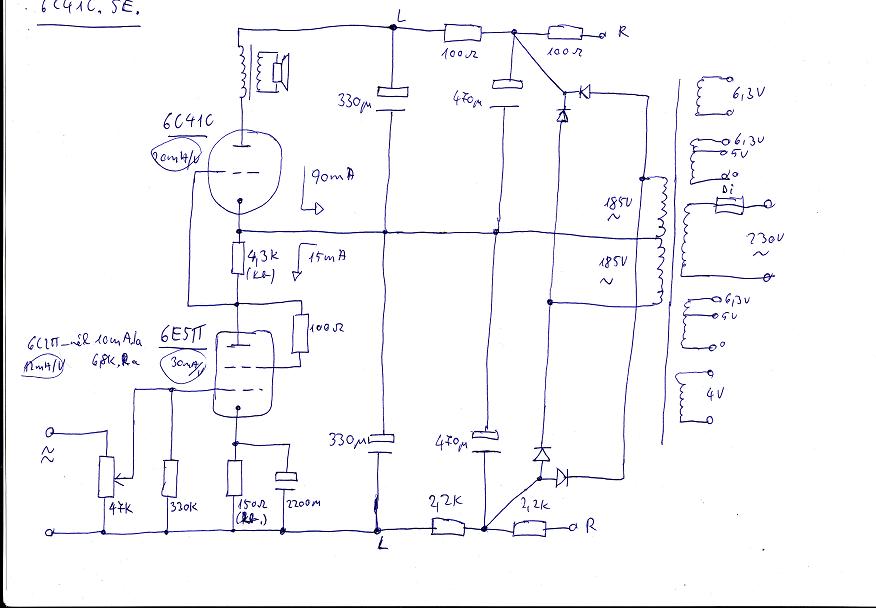 6C41C. SE.
L
R
100Ω
100Ω
330µ
470µ
6,3V
6C41C
20mA/V
6,3V
5V
0
90mA
185V
~
Di
230V
~
4,3K
15mA
185V
~
6,3V
5V
0
100Ω
6E5П
30mA/V
10mA/a
12mA/V
6,8K. Ra
4V
330µ
470µ
47K
330K
150Ω
2200µ
2,2K
2,2K
L
R